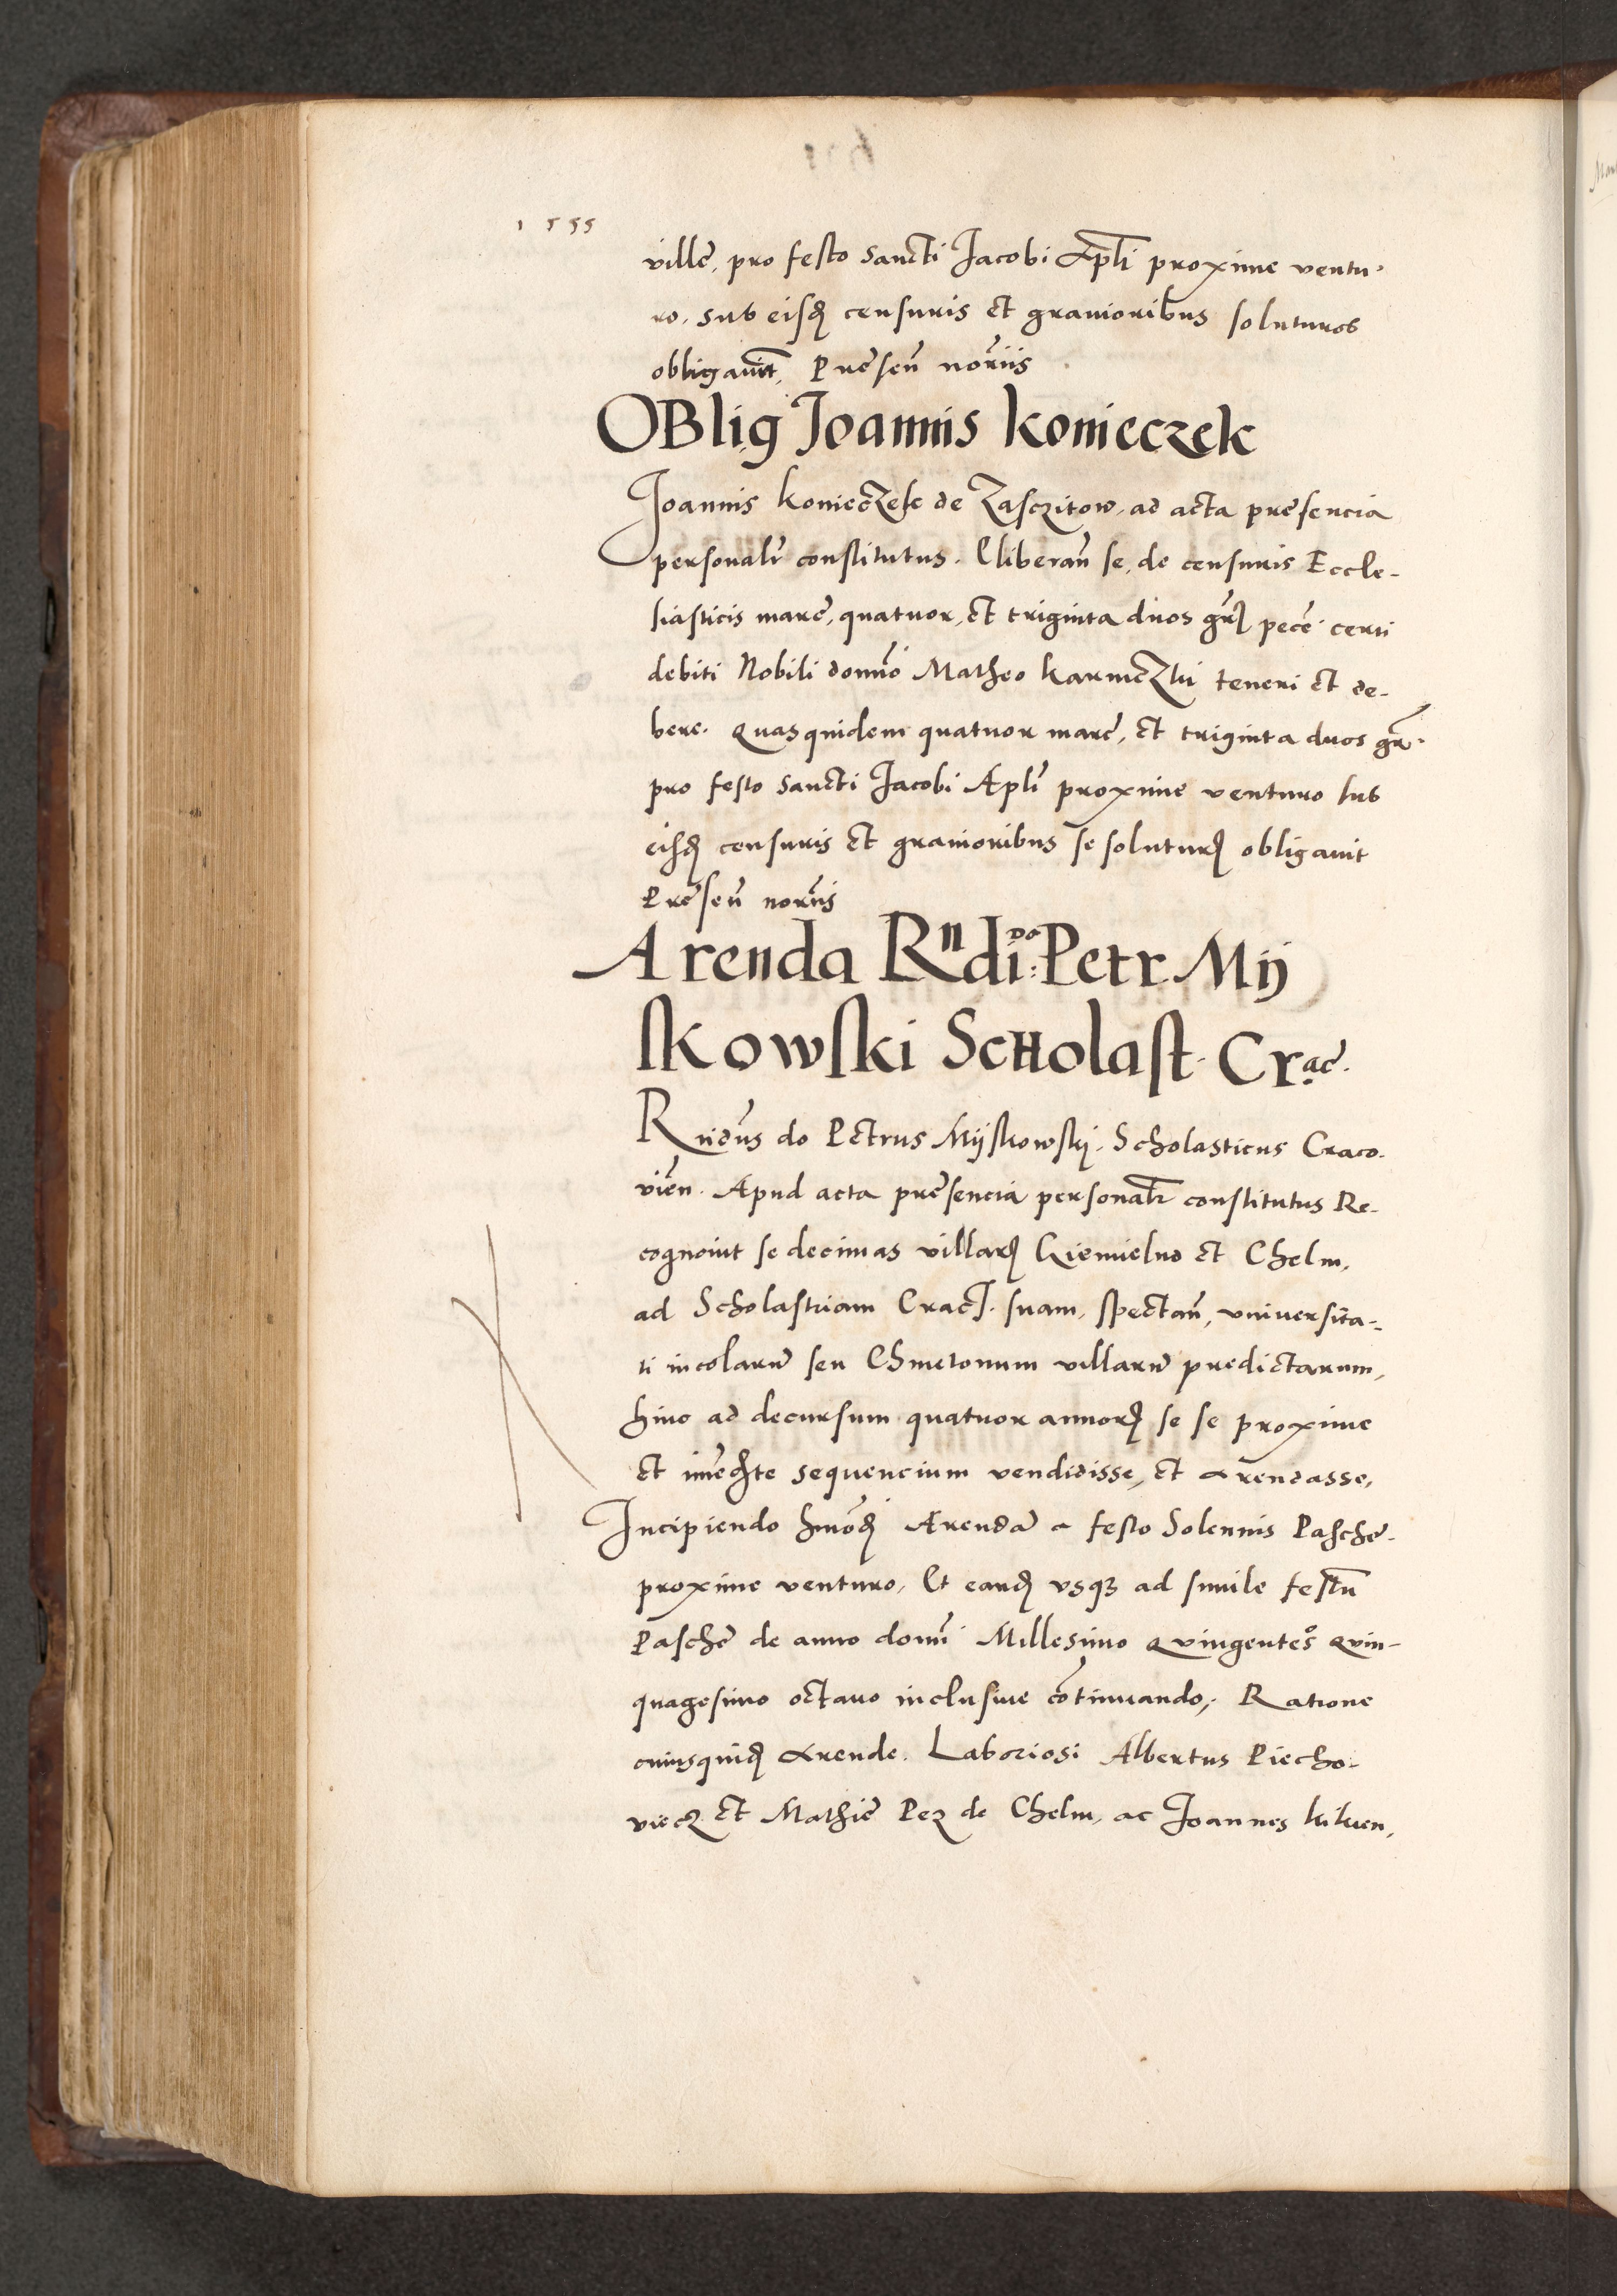 1555
villę, pro festo Sancti Jacobi Apli proxime ventu-
ro, sub eisdem censuris et gravioribus soluturos
obligavit, Presen noriis
OBlig Joannis Konieczek
Joannis Konieczek de Zasczitow, ad acta presencia
personalr constitutus. Cliberan se, de censuris Eccle-
siasticis marc, quatuor, et triginta duos gr pecc certi
debiti Nobili domino Matheo teneri et de-
bere. Quasquidem quatuor marc, et triginta duos gr.
pro festo Sancti Jacobi Apli proxime venturo sub
eisdem censuris et gravioribus se soluturum obligavit
Presen noriis
Arenda Rndi do. Petr. Mij
skowski Scholast. Crac.
Rndus do Petrus Mijskowskj. Scholasticus Craco-
vien. Apud acta presencia personalr constitutus Re-
cognovit se decimas villarum Kiemielno et Chelm,
ad Scholastriam Crac. suam, spectan, universita-
ti incolarum seu Chmetonum villarum predictarum,
hinc ad decursum quatuor annorum se se proxime
et immediate sequencium vendidisse, et arendasse,
Incipiendo hmoi Arendam a festo Solennis Paschę
proxime venturo, Et eandem usque ad simile festum
Paschę de anno domni Millesimo Quingenteso Quin-
quagesimo octavo inclusive continuando, Ratione
cuiusquidem Arende. Laboriosi Albertus Piecho-
vicz et Mathie Pez de Chelm, ac Joannes